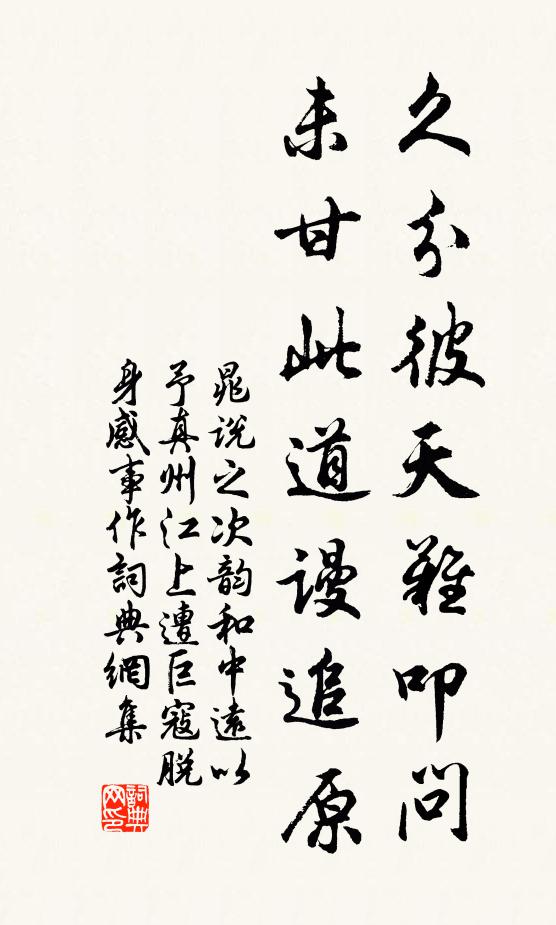 久分彼天難叩問
未甘此道謾追原
晁说之次韵和中遠以
予真州江上遭巨寇脱
身感事作詞典網集
詞典网印